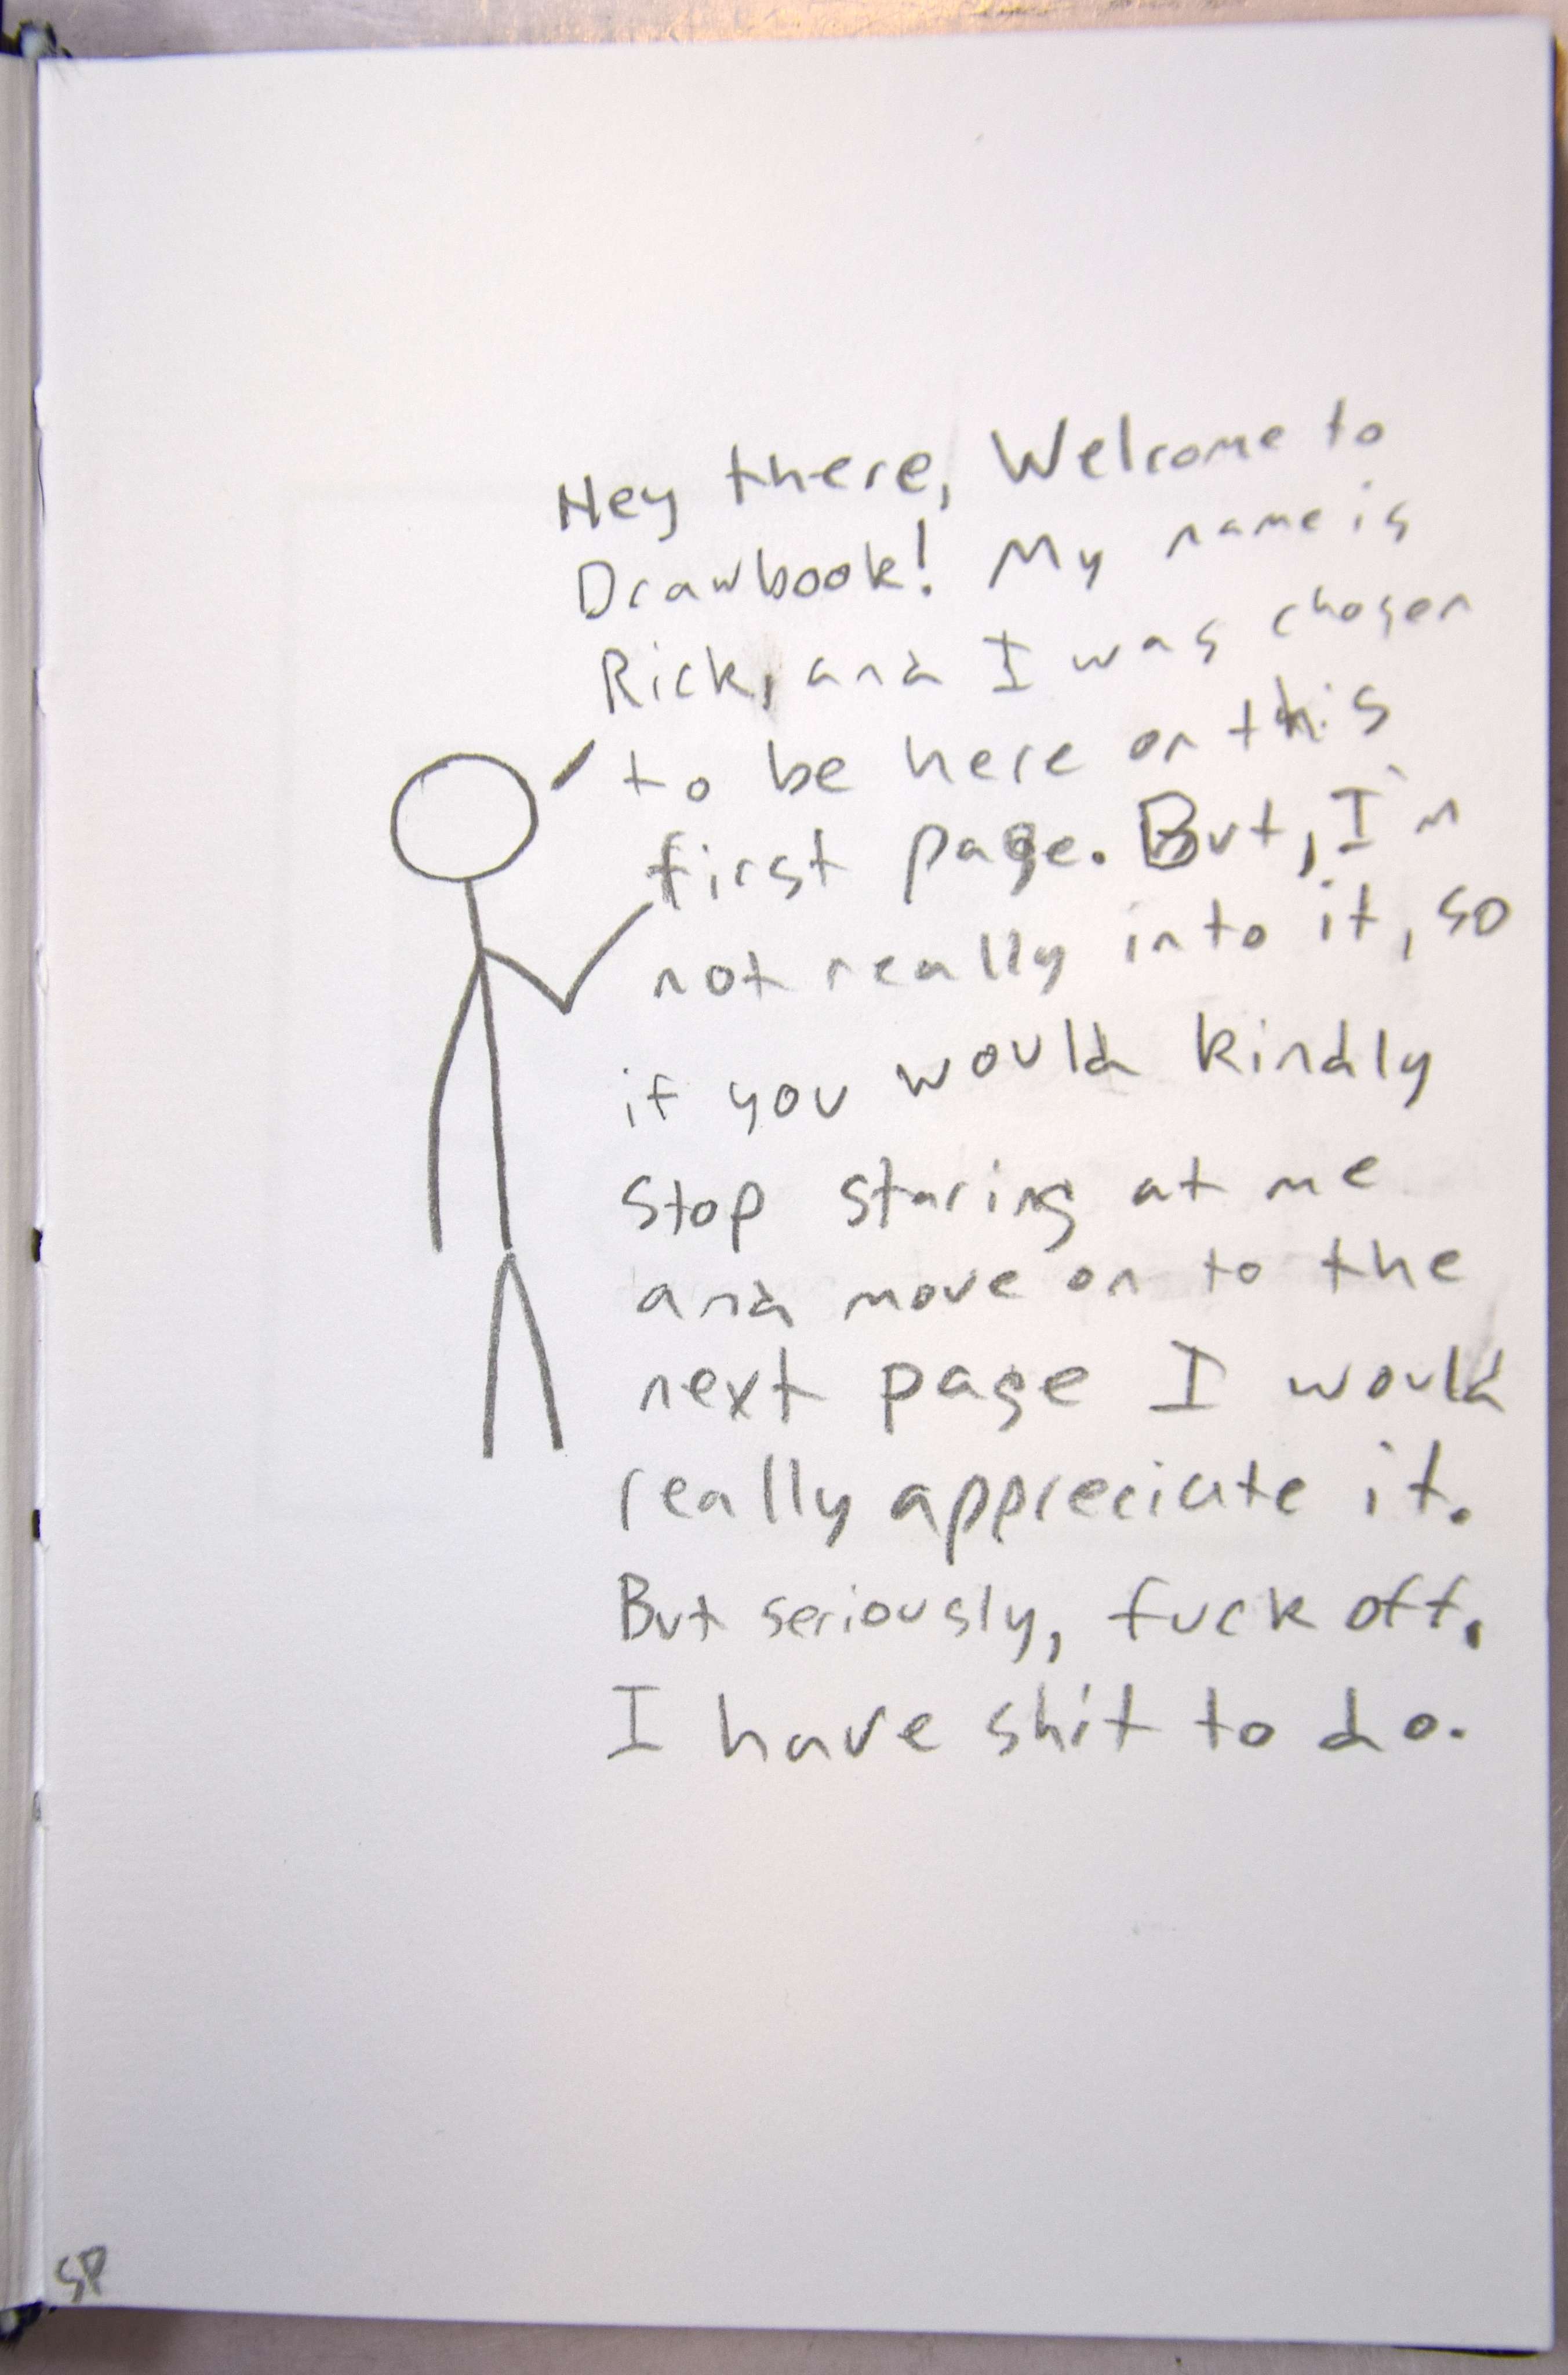 Hey there, Welcome to
Drawbook! My name is
Rick, and I was chosen
to be here on this
first page. But, I'm
not really into it, so
if you would kindly
Stop staring at me
and move on to the
next page I would
really appreciate it.
But seriously, fuck off,
I have shit to do.
SP